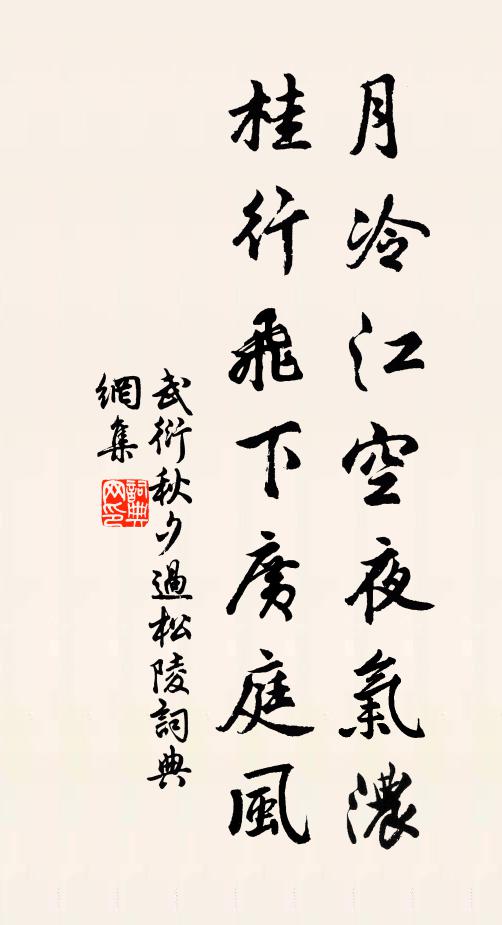 月冷江空夜氣濃
桂行飛下廣庭風
武衍秋夕過松陵詞典
網集
詞典
网印